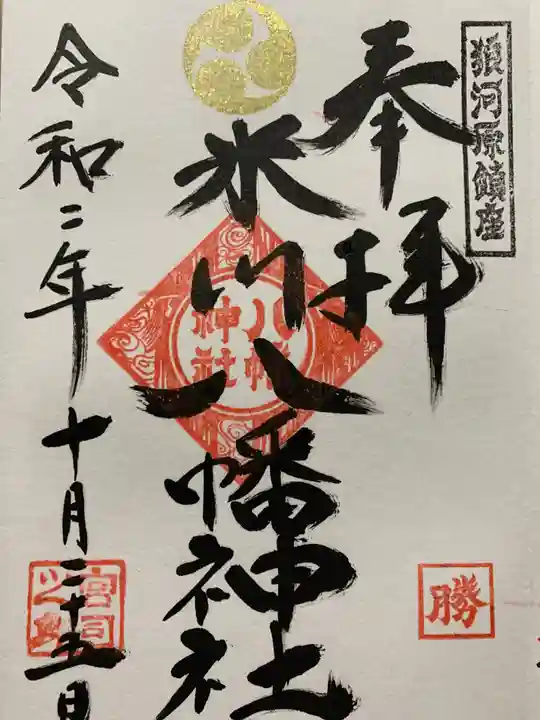 猿河原鎮座
奉拝
氷川八幡神社
八幡
神社
勝
令和二年十月二十五日
宮司
之印